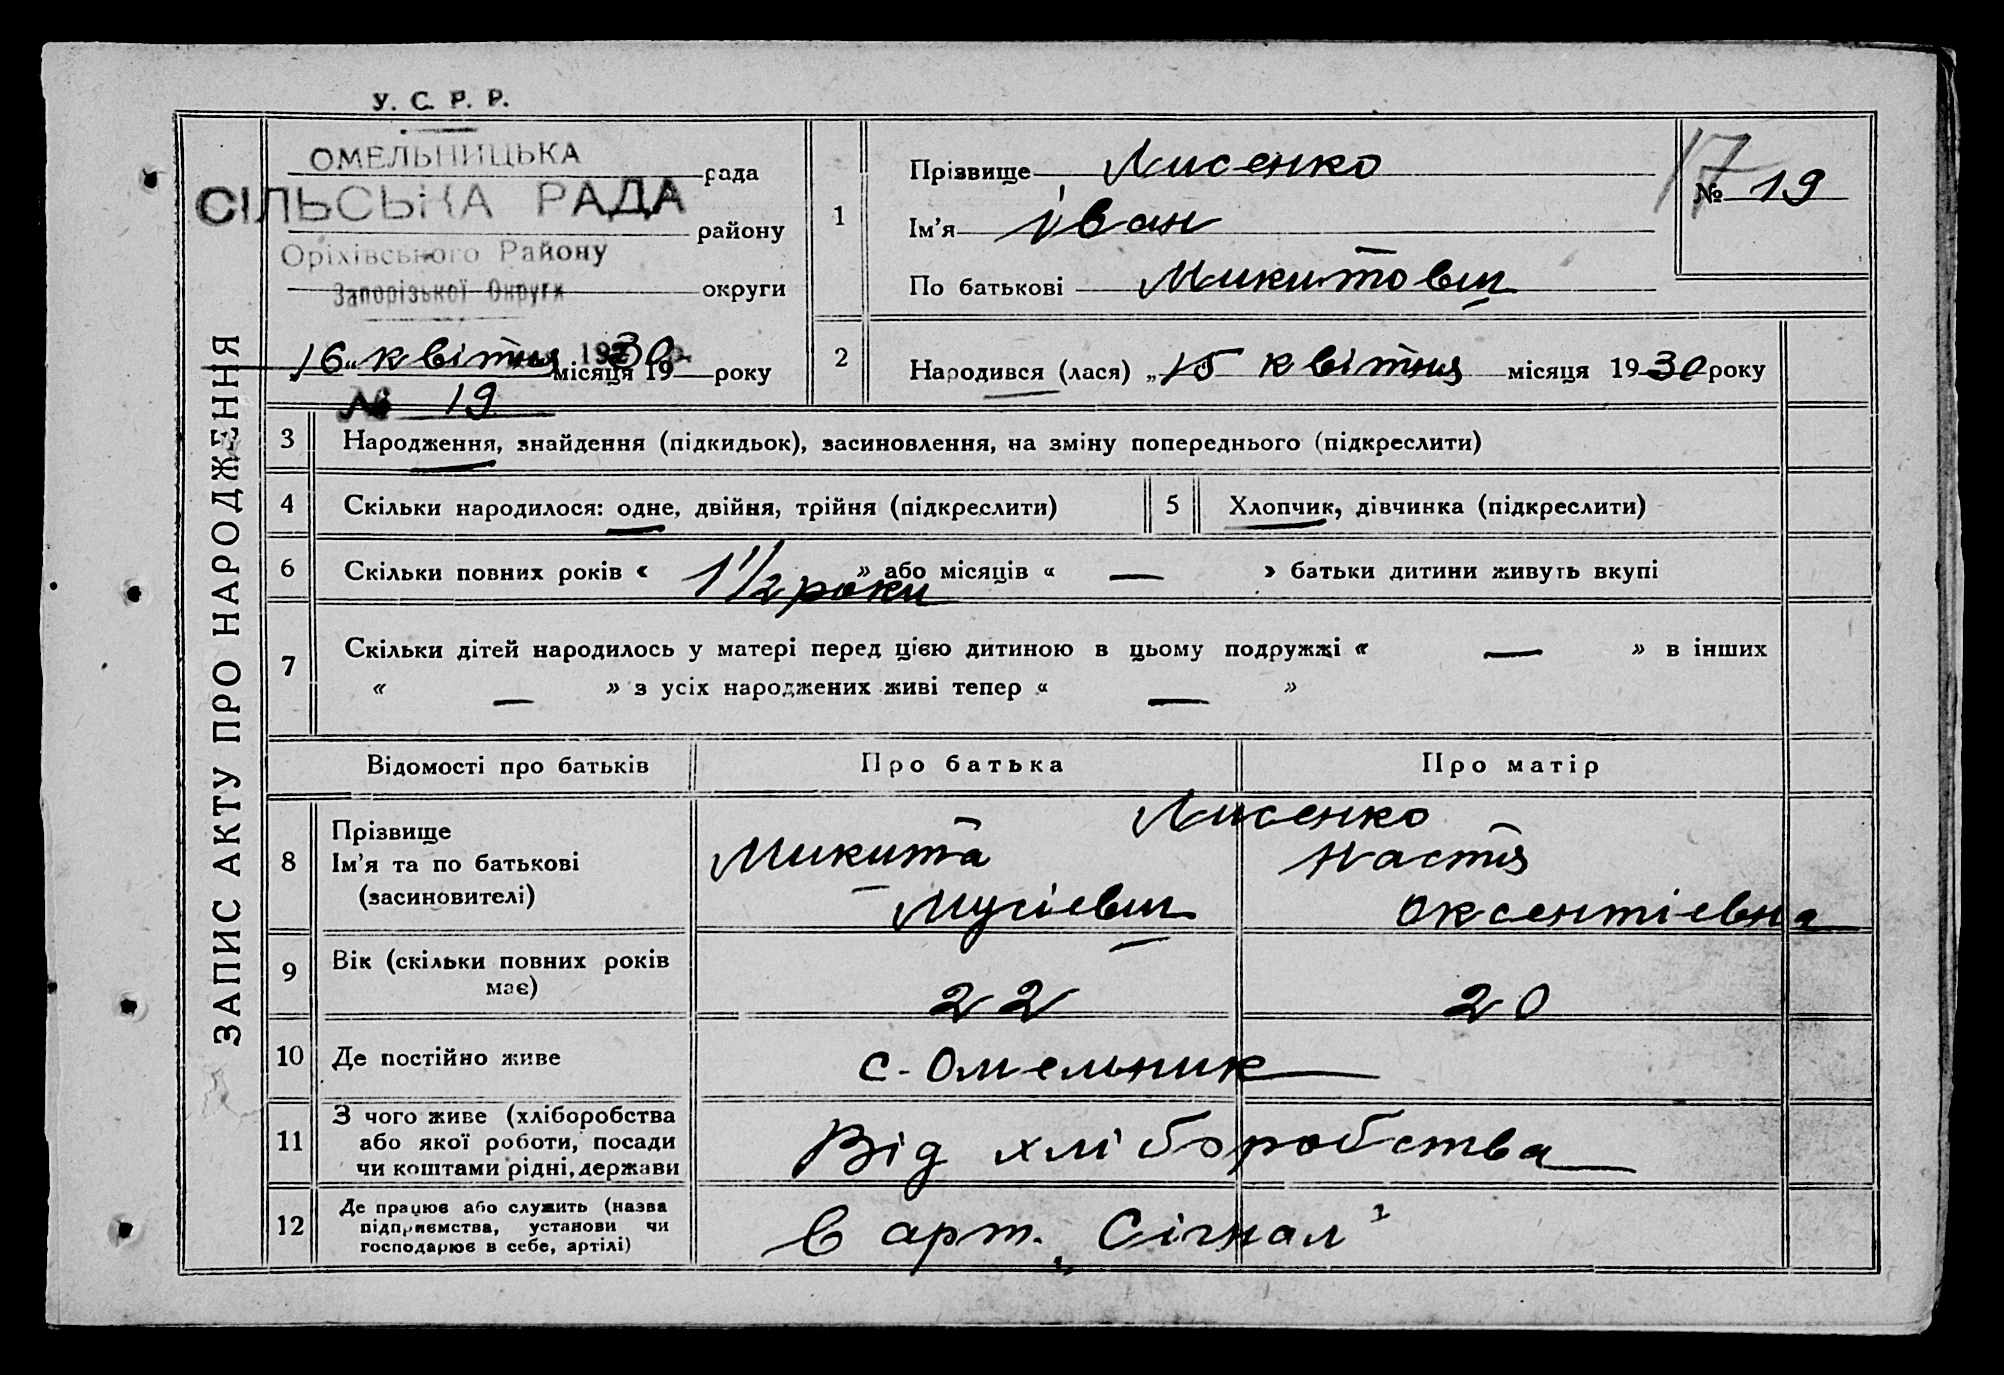 У. С. Р. Р.
ОМЕЛЬНИЦЬКА
рада
СІЛЬСЬКА РАДА
району
Оріхівського Району
Запорізької Округи
округи
„16" квітня місяця 1930 року
№ 19
ЗАПИС АКТУ ПРО НАРОДЖЕННЯ
1
Прізвище Лисенко
Ім'я Іван
По батькові Микитович
17
№ 19
2
Народився (лася) „15 квітня місяця 1930 року
3 Народження, знайдення (підкидьок), засиновлення, на зміну попереднього (підкреслити)
4 Скільки народилося: одне, двійня, трійня (підкреслити)
5 Хлопчик, дівчинка (підкреслити)
6 Скільки повних років « 1 1/2 роки » або місяців « — » батьки дитини живуть вкупі
7 Скільки дітей народилось у матері перед цією дитиною в цьому подружжі « — » в інших
« — » з усіх народжених живі тепер « — »
Відомості про батьків Про батька Про матір
8 Прізвище
Ім'я та по батькові
(засиновителі)
Лисенко
Микита Настя
Мусієвич Оксентієвна
9 Вік (скільки повних років
має)
22 20
10 Де постійно живе с. Омельник
11 З чого живе (хліборобства
або якої роботи, посади
чи коштами рідні, держави
Від хліборобства
12 Де працює або служить (назва
підприємства, установи чи
господарює в себе, артілі)
в арт. „Сігнал"